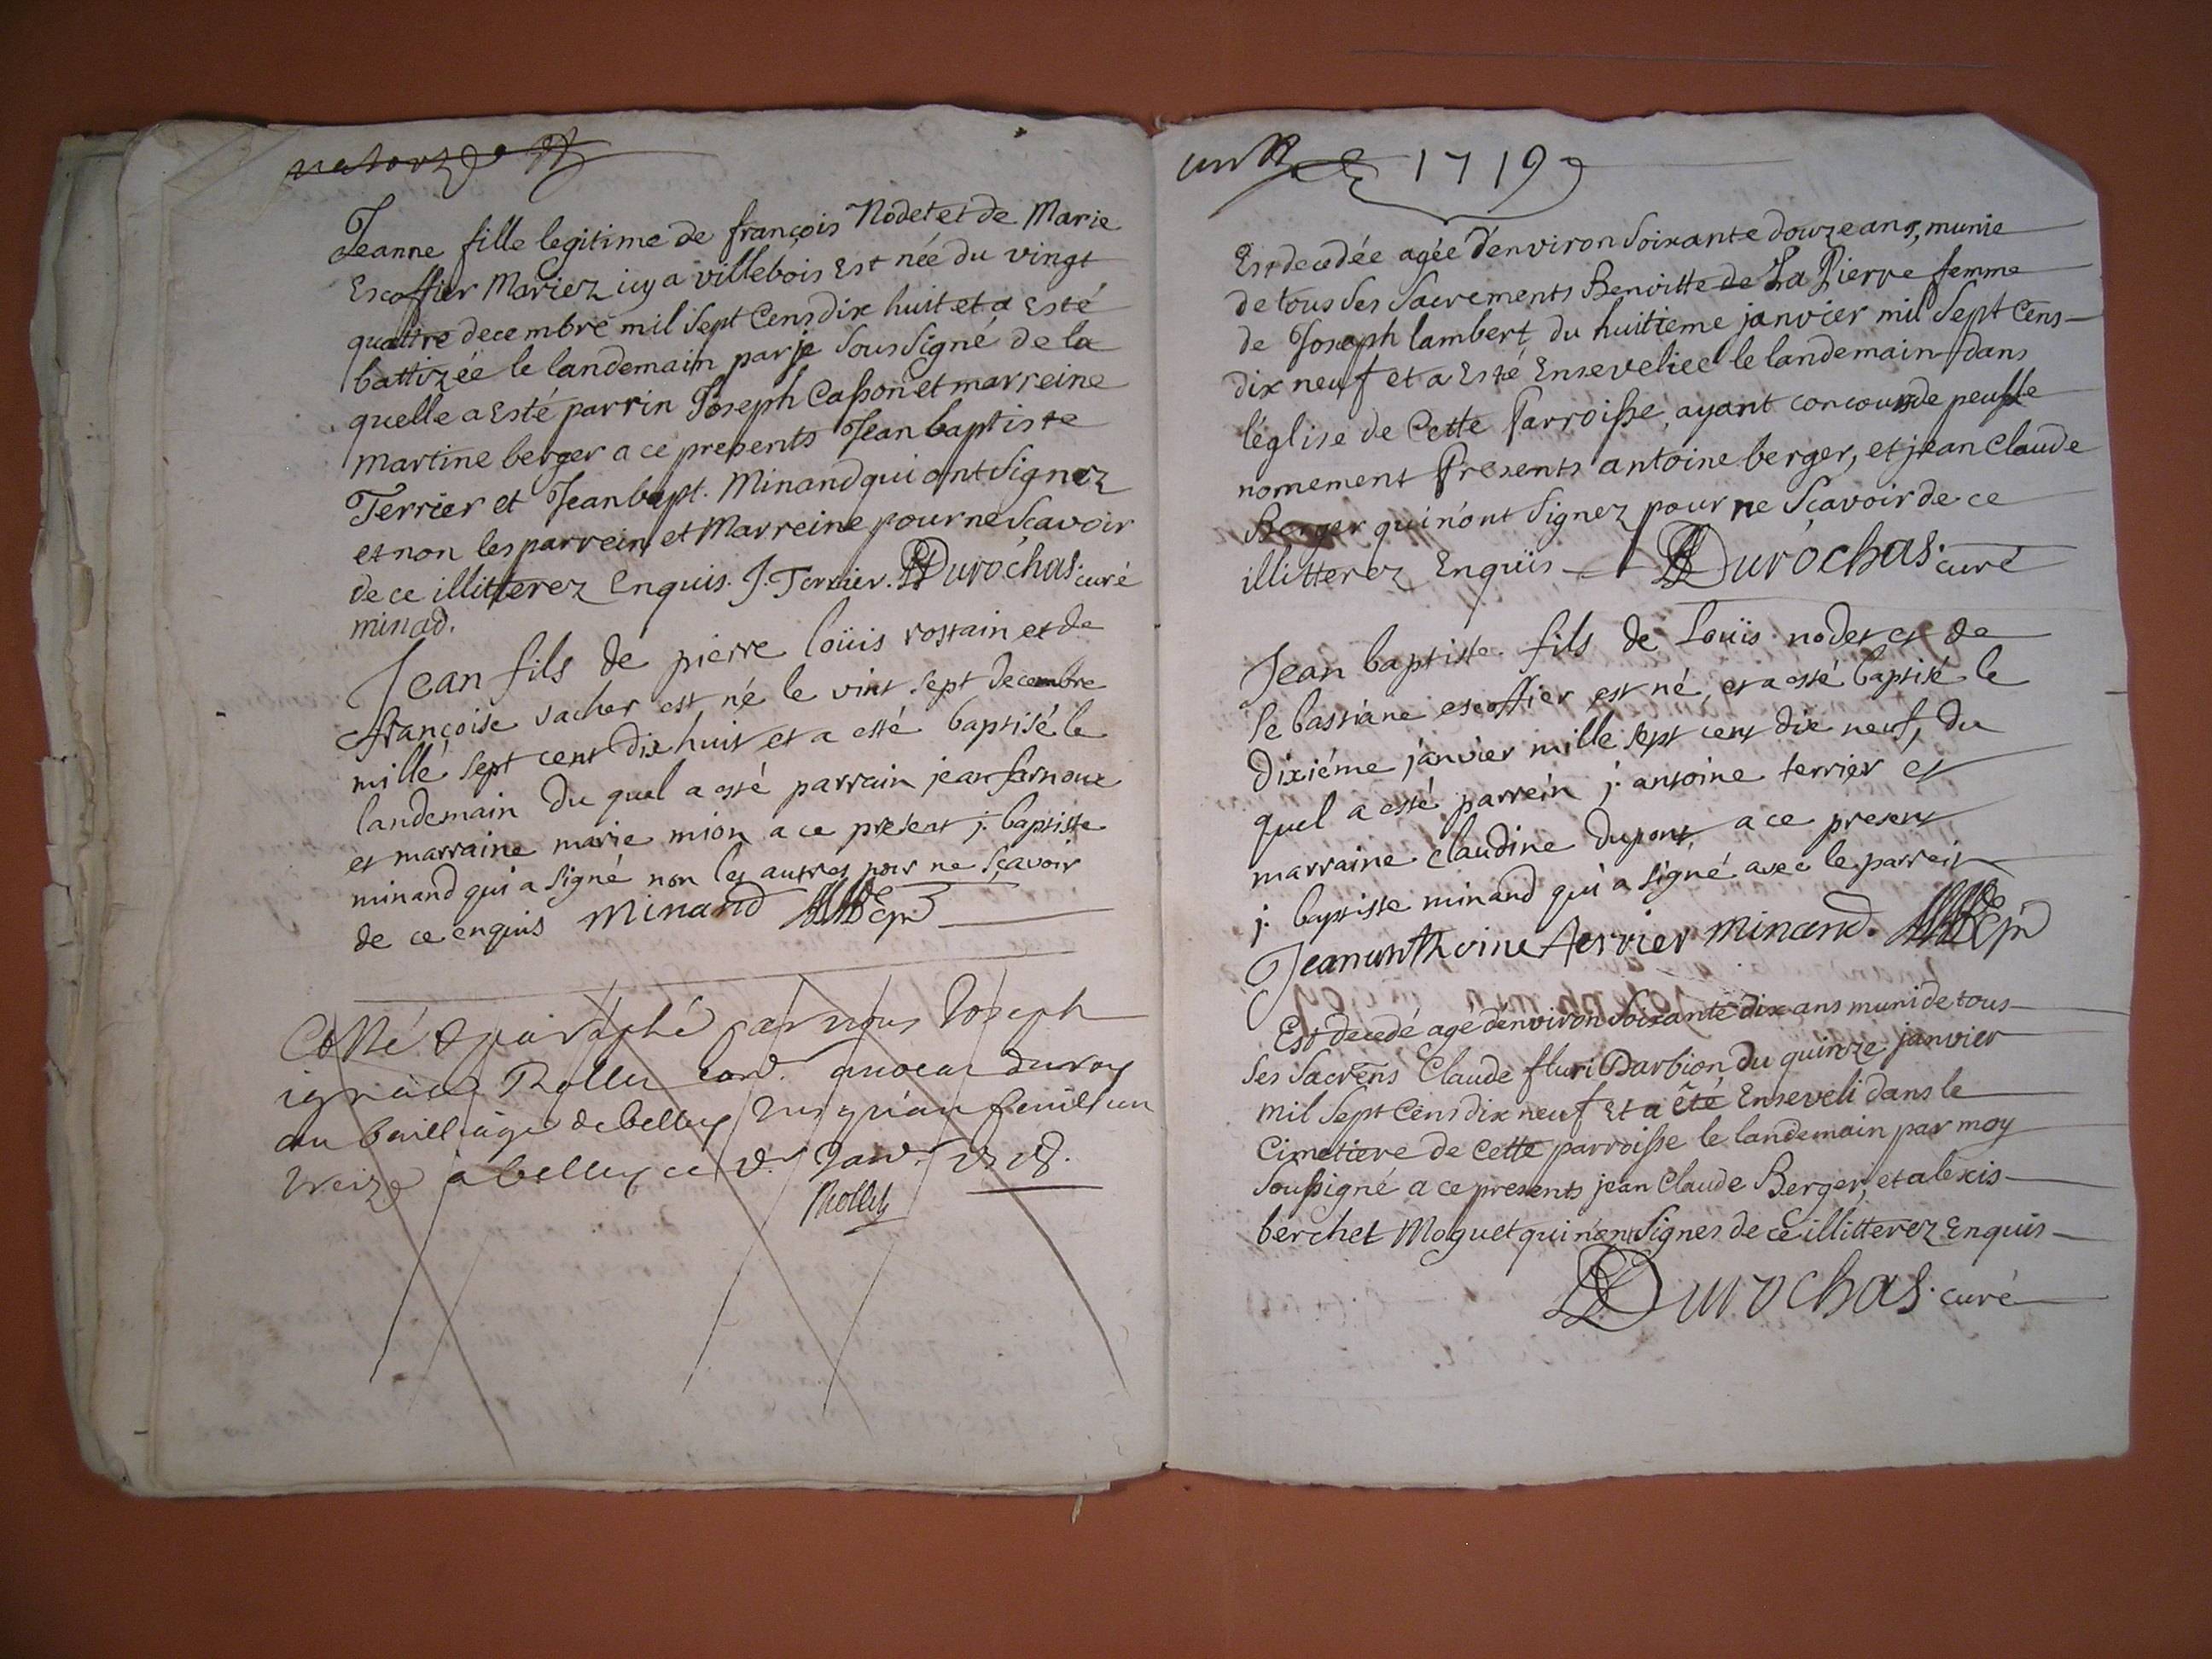 Jeanne fille legitime de françois Nodet et de Marie
Escoffier Mariez icy a villebois Est née du vingt
quattre decembre mil Sept Cens dix huit et a Esté
battizée le landemain par je Sous Signé de la
quelle a Esté parrin Joseph Casson et marreine
Martine berger a ce presents Jean baptiste
Terrier et Jean bapt. Minand qui ont Signez
et non les parrein et Marreine pour ne Scavoir
de ce illitterez Enquis. J. Terrier. Durochas. curé
minad.
Jean fils de pierre loüis rostain et de
françoise vacher est né le vint sept decembre
mille sept cent dix huit et a esté baptisé le
landemain du quel a esté parrain jean farnoux
et marraine marie mion a ce present j. baptiste
minand qui a signé non les autres pour ne sçavoir
de ce enquis Minand
Cotté & paraphé par nous Joseph
ignace Rollet avocat du roy
au bailliage de belley Jusqu'au feuillet
treize a belley ce Janv.
Rollet
un 1719
Est decedée agée d'environ Soixante douze ans, munie
de tous Ses Sacrements Benoitte de La Pierre femme
de Joseph lambert du huitieme janvier mil Sept Cens
dix neuf et a Esté Enseveliee le landemain dans
l'église de Cette Parroisse, ayant concour de peuple
nomement Presents antoine berger, et jean Claude
Berger qui n'ont Signez pour ne Scavoir de ce
illitterez Enquis Durochas. curé
Jean baptiste fils de Loüis nodet et de
sebastiane escoffier est né, et a esté baptisé le
dixiéme janvier mille sept cent dix neuf, du
quel a esté parrein j. antoine terrier et
marraine claudine dupont, a ce present
j. baptiste minand qui a signé avec le parrein
Jean anthoine terrier Minand.
Est decedé agé d'environ Soixante dix ans muni de tous
Ses Sacrens Claude fluri Darbion du quinze janvier
mil Sept Cens dix neuf Et a été Enseveli dans le
Cimetiere de Cette parroisse le landemain par moy
Soussigné a ce presents jean Claude Berger, et alexis
berchet Moguet qui n'ont Signes de ce illitterez Enquis
Durochas. curé